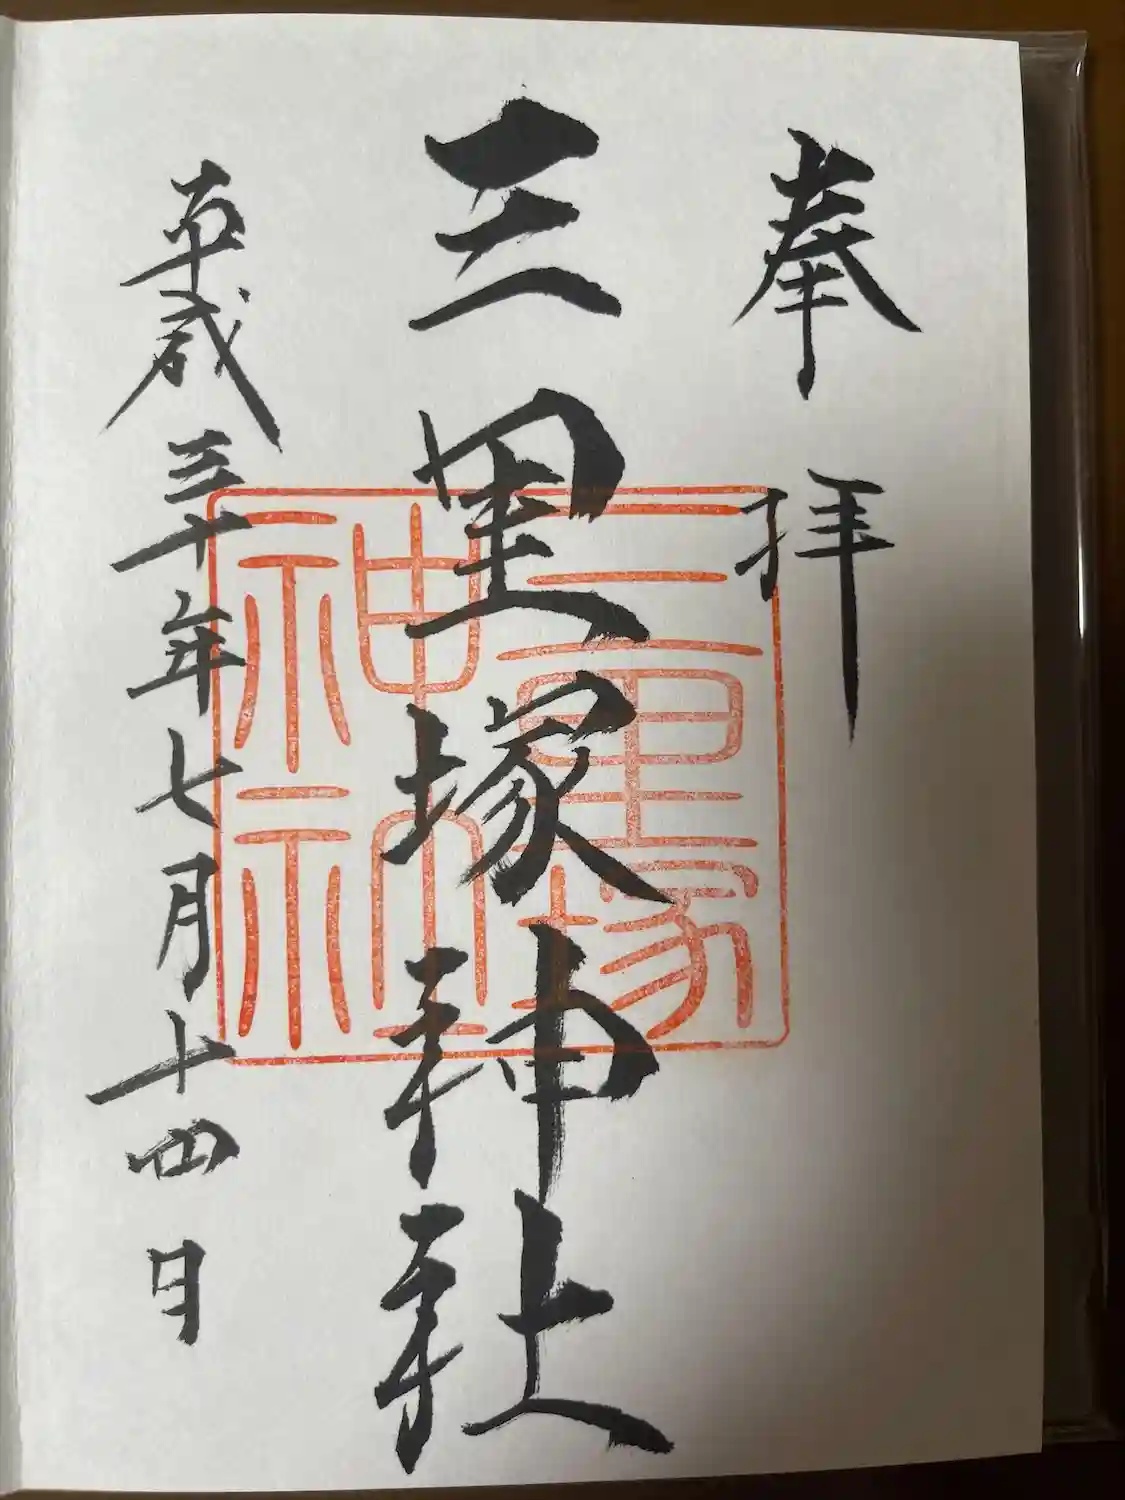 奉拝
三里塚神社
平成三十年七月十四日
三里塚
神社之印